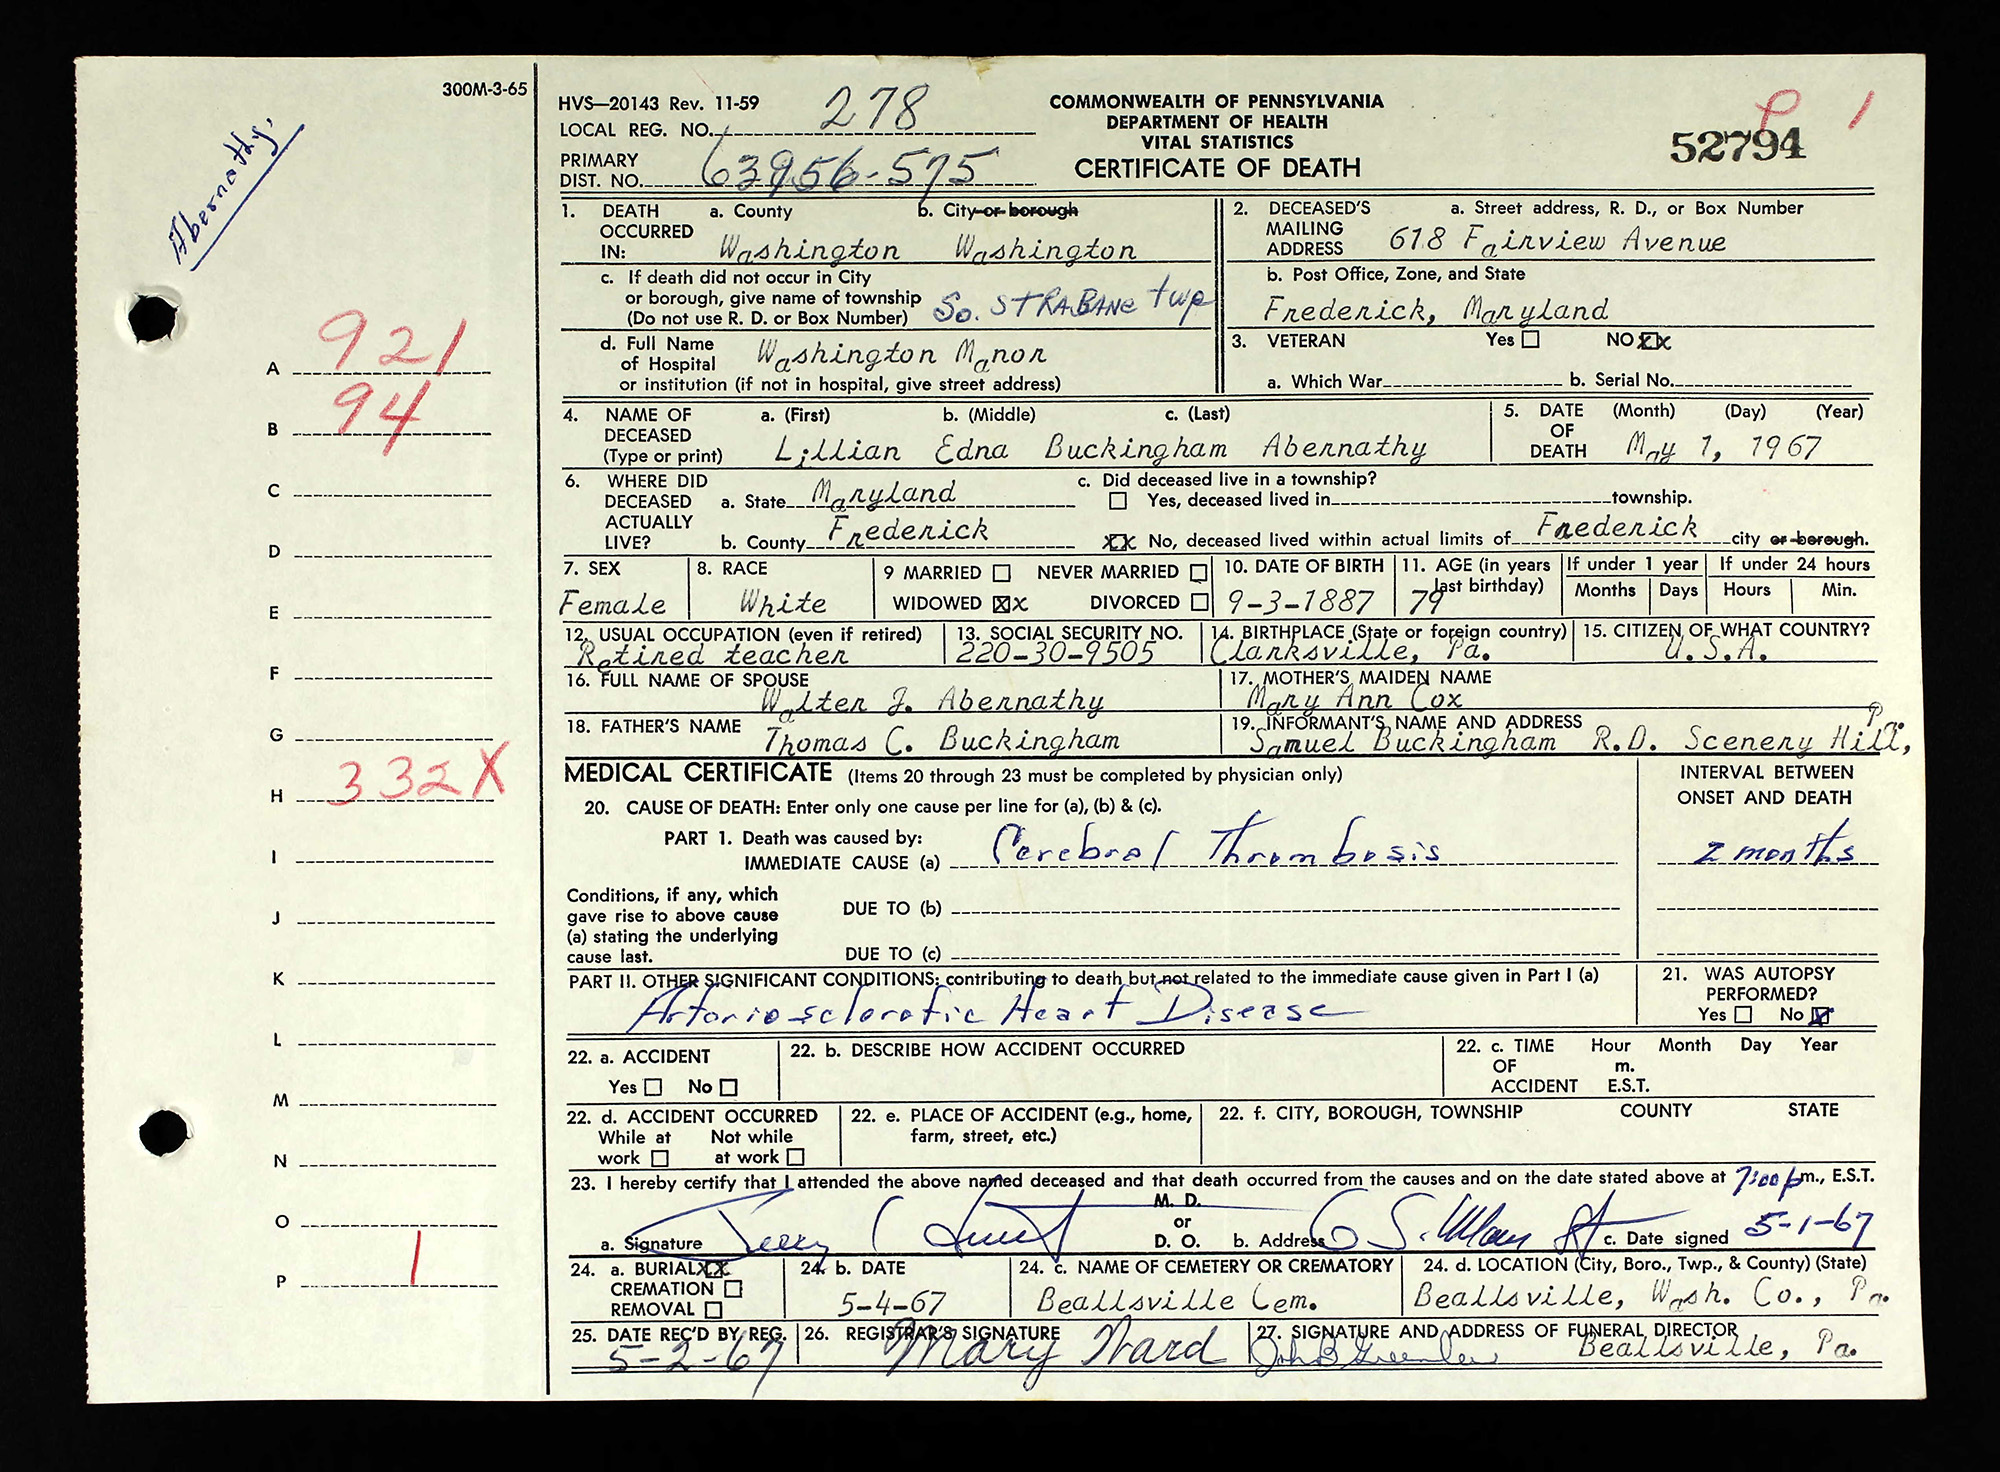 300M-3-65
Abernathy,
A 921
B 94
C
D
E
F
G
H 332X
I
J
K
L
M
N
O
P 1
HVS—20143 Rev. 11-59
LOCAL REG. NO. 278
PRIMARY
DIST. NO. 63956-575
COMMONWEALTH OF PENNSYLVANIA
DEPARTMENT OF HEALTH
VITAL STATISTICS
CERTIFICATE OF DEATH
P 1
52794
1. DEATH OCCURRED IN: a. County b. City or borough
Washington Washington
c. If death did not occur in City
or borough, give name of township So. STRABANE twp
(Do not use R. D. or Box Number)
d. Full Name Washington Manor
of Hospital
or institution (if not in hospital, give street address)
2. DECEASED'S MAILING ADDRESS a. Street address, R. D., or Box Number
618 Fairview Avenue
b. Post Office, Zone, and State
Frederick, Maryland
3. VETERAN Yes NO XX
a. Which War b. Serial No.
4. NAME OF DECEASED (Type or print) a. (First) b. (Middle) c. (Last)
Lillian Edna Buckingham Abernathy
5. DATE OF DEATH (Month) (Day) (Year)
May 1, 1967
6. WHERE DID DECEASED ACTUALLY LIVE? a. State Maryland
b. County Frederick
c. Did deceased live in a township?
Yes, deceased lived in township.
XX No, deceased lived within actual limits of Frederick city or borough.
7. SEX
Female
8. RACE
White
9 MARRIED NEVER MARRIED
WIDOWED Xx DIVORCED
10. DATE OF BIRTH
9-3-1887
11. AGE (in years last birthday)
79
If under 1 year If under 24 hours
Months Days Hours Min.
12. USUAL OCCUPATION (even if retired)
Retired teacher
13. SOCIAL SECURITY NO.
220-30-9505
14. BIRTHPLACE (State or foreign country)
Clarksville, Pa.
15. CITIZEN OF WHAT COUNTRY?
U.S.A.
16. FULL NAME OF SPOUSE
Walter J. Abernathy
17. MOTHER'S MAIDEN NAME
Mary Ann Cox
18. FATHER'S NAME
Thomas C. Buckingham
19. INFORMANT'S NAME AND ADDRESS
Samuel Buckingham R.D. Scenery Hill, Pa.
MEDICAL CERTIFICATE (Items 20 through 23 must be completed by physician only)
INTERVAL BETWEEN
ONSET AND DEATH
20. CAUSE OF DEATH: Enter only one cause per line for (a), (b) & (c).
PART 1. Death was caused by:
IMMEDIATE CAUSE (a) Cerebral Thrombosis 2 months
Conditions, if any, which
gave rise to above cause
(a) stating the underlying
cause last.
DUE TO (b)
DUE TO (c)
PART II. OTHER SIGNIFICANT CONDITIONS: contributing to death but not related to the immediate cause given in Part I (a)
Arteriosclerotic Heart Disease
21. WAS AUTOPSY
PERFORMED?
Yes No X
22. a. ACCIDENT
Yes No
22. b. DESCRIBE HOW ACCIDENT OCCURRED
22. c. TIME OF ACCIDENT Hour Month Day Year
m.
E.S.T.
22. d. ACCIDENT OCCURRED
While at work Not while at work
22. e. PLACE OF ACCIDENT (e.g., home,
farm, street, etc.)
22. f. CITY, BOROUGH, TOWNSHIP COUNTY STATE
23. I hereby certify that I attended the above named deceased and that death occurred from the causes and on the date stated above at 7:00 pm., E.S.T.
M. D.
or
a. Signature D. O. b. Address c. Date signed 5-1-67
24. a. BURIAL XX
CREMATION
REMOVAL
24. b. DATE
5-4-67
24. c. NAME OF CEMETERY OR CREMATORY
Beallsville Cem.
24. d. LOCATION (City, Boro., Twp., & County) (State)
Beallsville, Wash. Co., Pa.
25. DATE REC'D BY REG.
5-2-67
26. REGISTRAR'S SIGNATURE
Mary Ward
27. SIGNATURE AND ADDRESS OF FUNERAL DIRECTOR
John B Greenlee Beallsville, Pa.